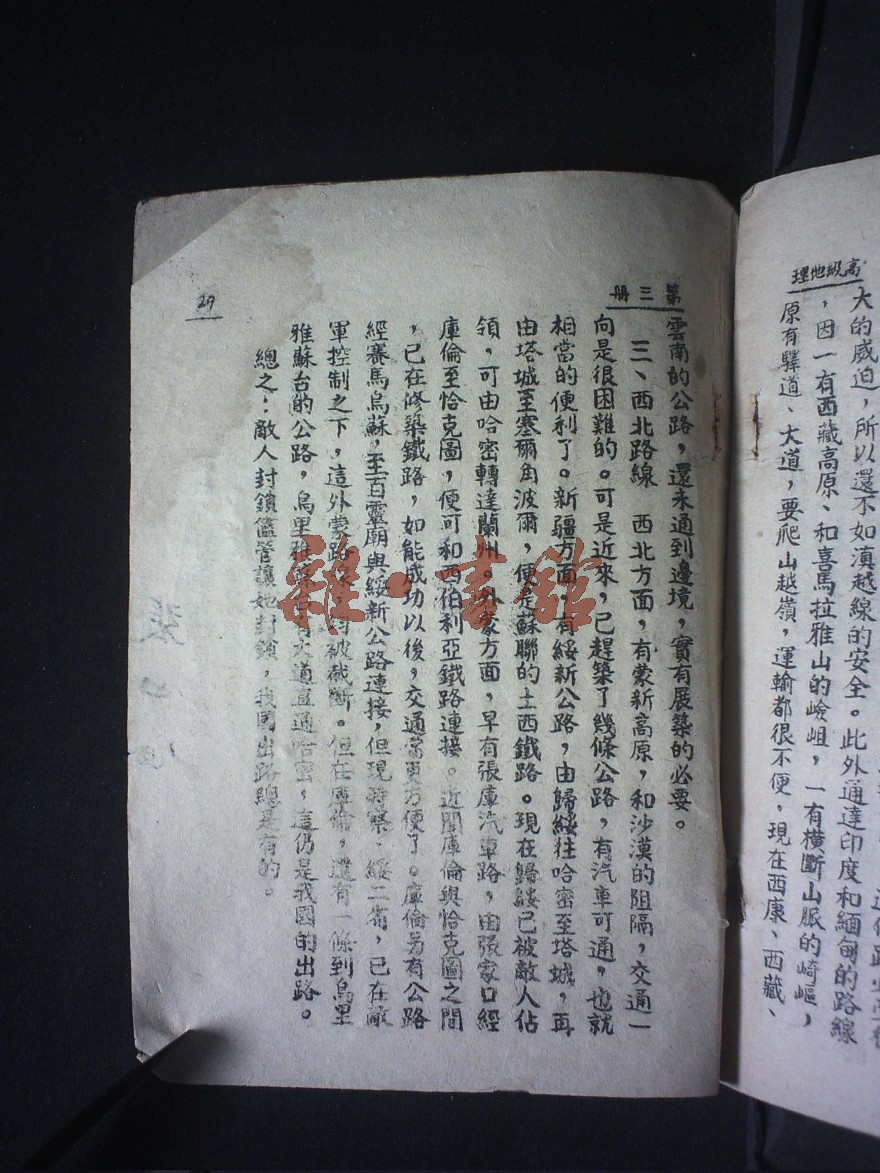 高級地理
大的威迫，所以還不如滇越線的安全。此外通達印度和緬甸的路線
，因一有西藏高原、和喜馬拉雅山的嶮岨，一有橫斷山脈的崎嶇，
原有驛道、大道，要爬山越嶺，運輸都很不便，現在西康、西藏、
第三冊
雲南的公路，還未通到邊境，實有展築的必要。
三、西北路線　西北方面，有蒙新高原，和沙漠的阻隔，交通一
向是很困難的。可是近來，已趕築了幾條公路，有汽車可通，也就
相當的便利了。新疆方面，有綏新公路，由歸綏往哈密至塔城，再
由塔城至塞爾角波爾，便是蘇聯的土西鐵路。現在歸綏已被敵人佔
領，可由哈密轉達蘭州。外蒙方面，早有張庫汽車路，由張家口經
庫倫至恰克圖，便可和西伯利亞鐵路連接。近聞庫倫與恰克圖之間
，已在修築鐵路，如能成功以後，交通當更方便了。庫倫另有公路
經賽馬烏蘇，至百靈廟與綏新公路連接，但現時察．綏二省，已在敵
軍控制之下，這外蒙路線，均被截斷。但在庫倫，還有一條到烏里
雅蘇台的公路，烏里雅蘇台有大道直通哈密，這仍是我國的出路。
總之：敵人封鎖儘管讓她封鎖，我國出路總是有的。
29
雜·書館